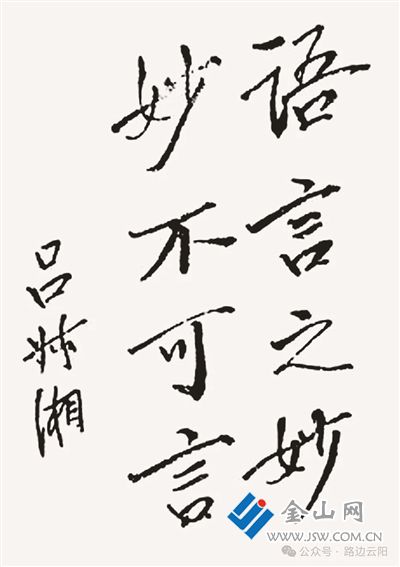 语言之妙
妙不可言
吕叔湘
金山网
WWW.JSW.COM.CN
公众号·路边云阳